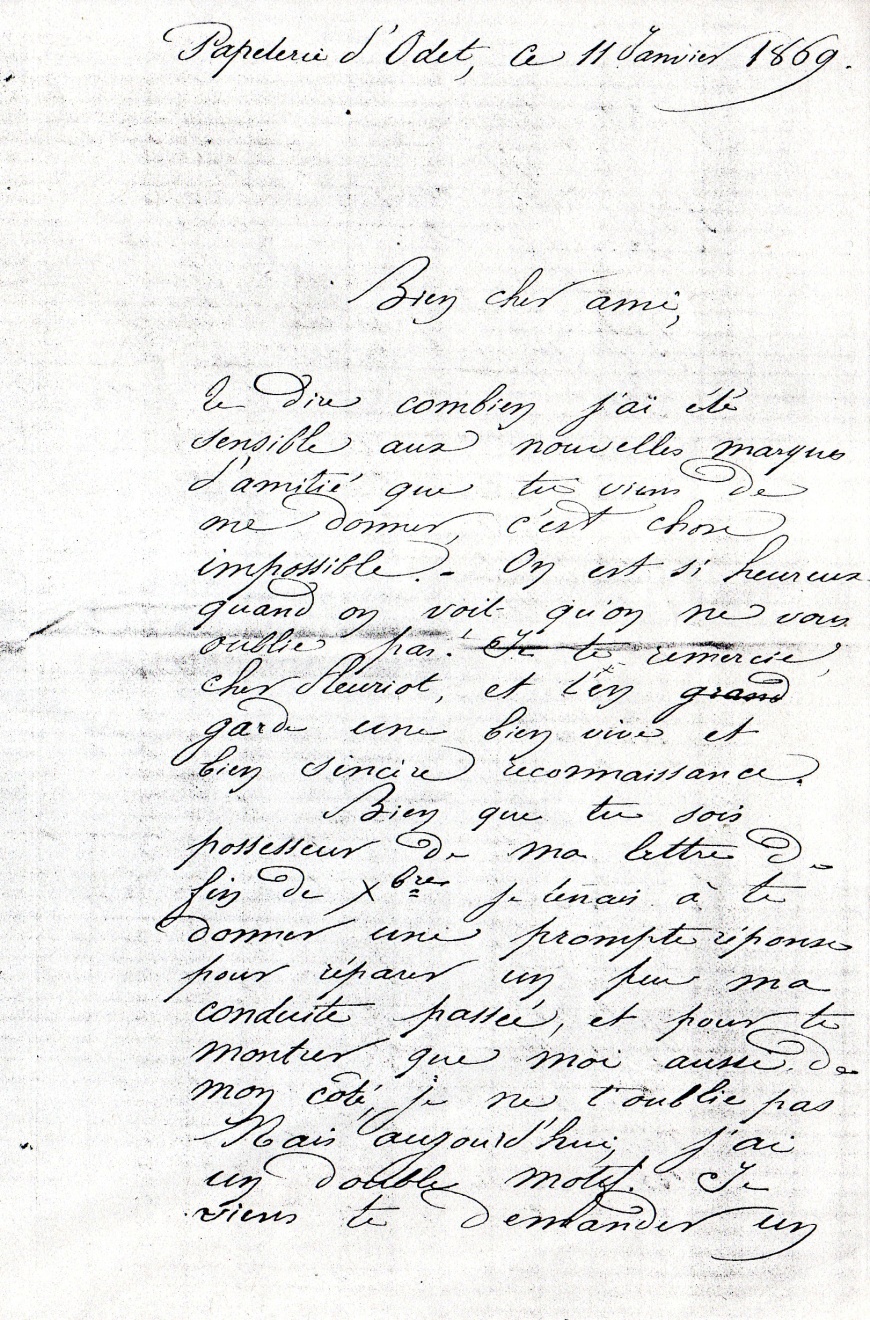 Papeterie d'Odet, ce 11 Janvier 1869.
Bien cher ami,
Te dire combien j'ai été
sensible aux nouvelles marques
d'amitié que tu viens de
me donner, c'est chose
impossible. - On est si heureux
quand on voit qu'on ne vous
oublie pas! Je te remercie,
cher Fleuriot, et t'en grand
garde une bien vive et
bien sincère reconnaissance.
Bien que tu sois
possesseur de ma lettre de
fin de Xbre, je tenais à te
donner une prompte réponse
pour réparer un peu ma
conduite passée, et pour te
montrer que moi aussi, de
mon côté, je ne t'oublie pas
Mais aujourd'hui, j'ai
un double motif. Je
viens te demander un